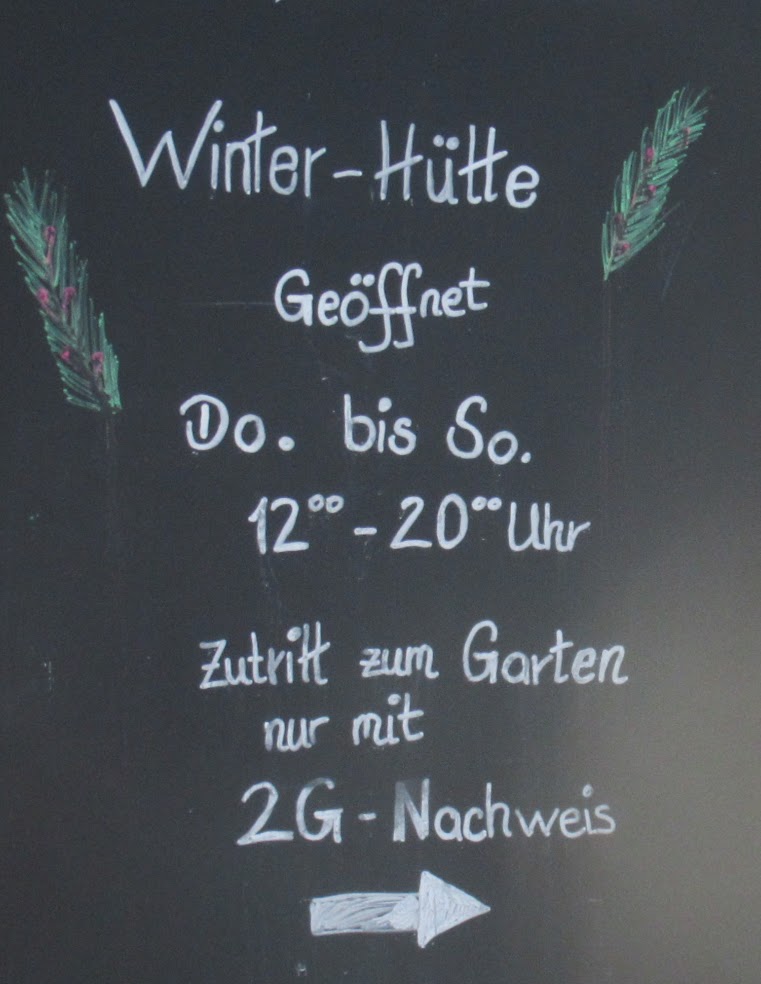 Winter-Hütte
Geöffnet
Do. bis So.
12⁰⁰-20⁰⁰ Uhr
Zutritt zum Garten
nur mit
2G-Nachweis